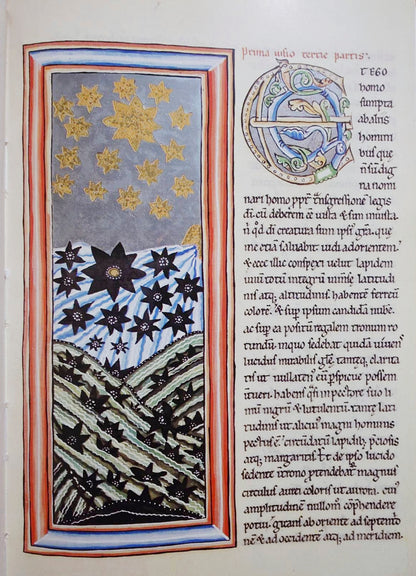 Prima uisio tercie partis.
ET EGO
homo
sumpta
ab aliis
homini
bus que
n̄ sū dig
na nomi
nari homo ꝓpt̄ t̃nsgressionē legis
dī. cū deberem eē iusta & sum iniusta.
n̄ qd̄ dī creatura sum ipsīꝰ gr̃a. que
me etiā saluabit. uidi ad orientē.
& ecce illic conspexi uelut lapidem
unū totū integrū inm̄se latitudi
nis atq; altitudinis habentē ferreū
colorē. & sup̱ ipsum candidā nube.
ac sup̱ ea positū regalem tronum ro
tundū. in quo sedebat quidā uiuen̄s
lucidus mirabilis gl̃e. tanteq; clarita
tis ut nullaten̄ eū p̱spicue possem
intueri. habens q̃si in pectore suo li
mū nigrū & lutulentū. tante lati
tudinis ut alicuiꝰ magni hominis
pectus ē. circūdatū lapidibꝰ p̄ciosis
atq; margaritis. Et de ipso lucido
sedente ī trono p̄tendebat̃ magnus
circulus aurei coloris ut aurora. cuiꝰ
amplitudinē nullom̊ cōp̄hendere
potui. girans ab oriente ad septent̓o
nē & ad occidentē atq; ad meridiem.